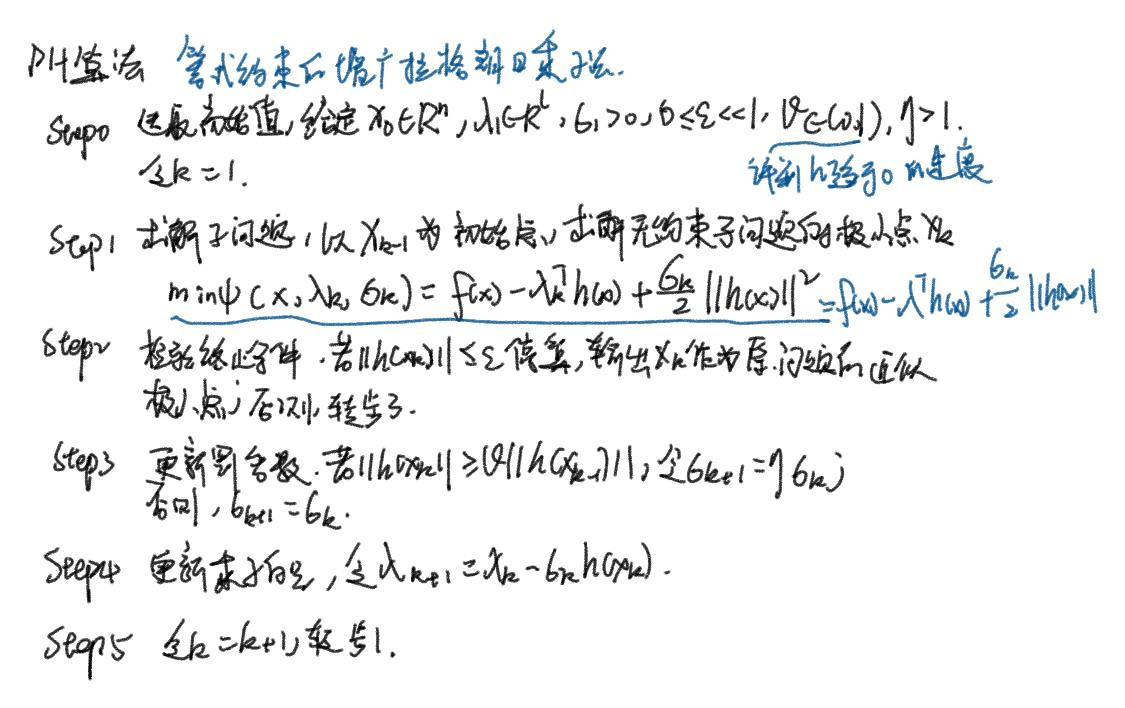 PH算法 等式约束的增广拉格朗日乘子法.
Step0 选取初始值, 给定 x₀∈Rⁿ, λ₁∈Rˡ, σ₁>0, 0≤ε<<1, ϑ∈(0,1), η>1.
令k=1.
评判h趋于0的速度
Step1 求解子问题, 以 xₖ₋₁ 为初始点, 求解无约束子问题的极小点 xₖ
minψ(x, λₖ, σₖ) = f(x) - λₖᵀh(x) + σₖ/2 ||h(x)||² = f(x) - λᵀh(x) + σₖ/2 ||h(x)||
Step2 检验终止条件. 若||h(xₖ)||≤ε 停算, 输出xₖ作为原问题的近似
极小点; 否则, 转步3.
Step3 更新罚参数. 若||h(xₖ)||≥ϑ||h(xₖ₋₁)||, 令σₖ₊₁=ησₖ;
否则, σₖ₊₁=σₖ.
Step4 更新乘子向量, 令λₖ₊₁=λₖ-σₖh(xₖ).
Step5 令k=k+1, 转步1.